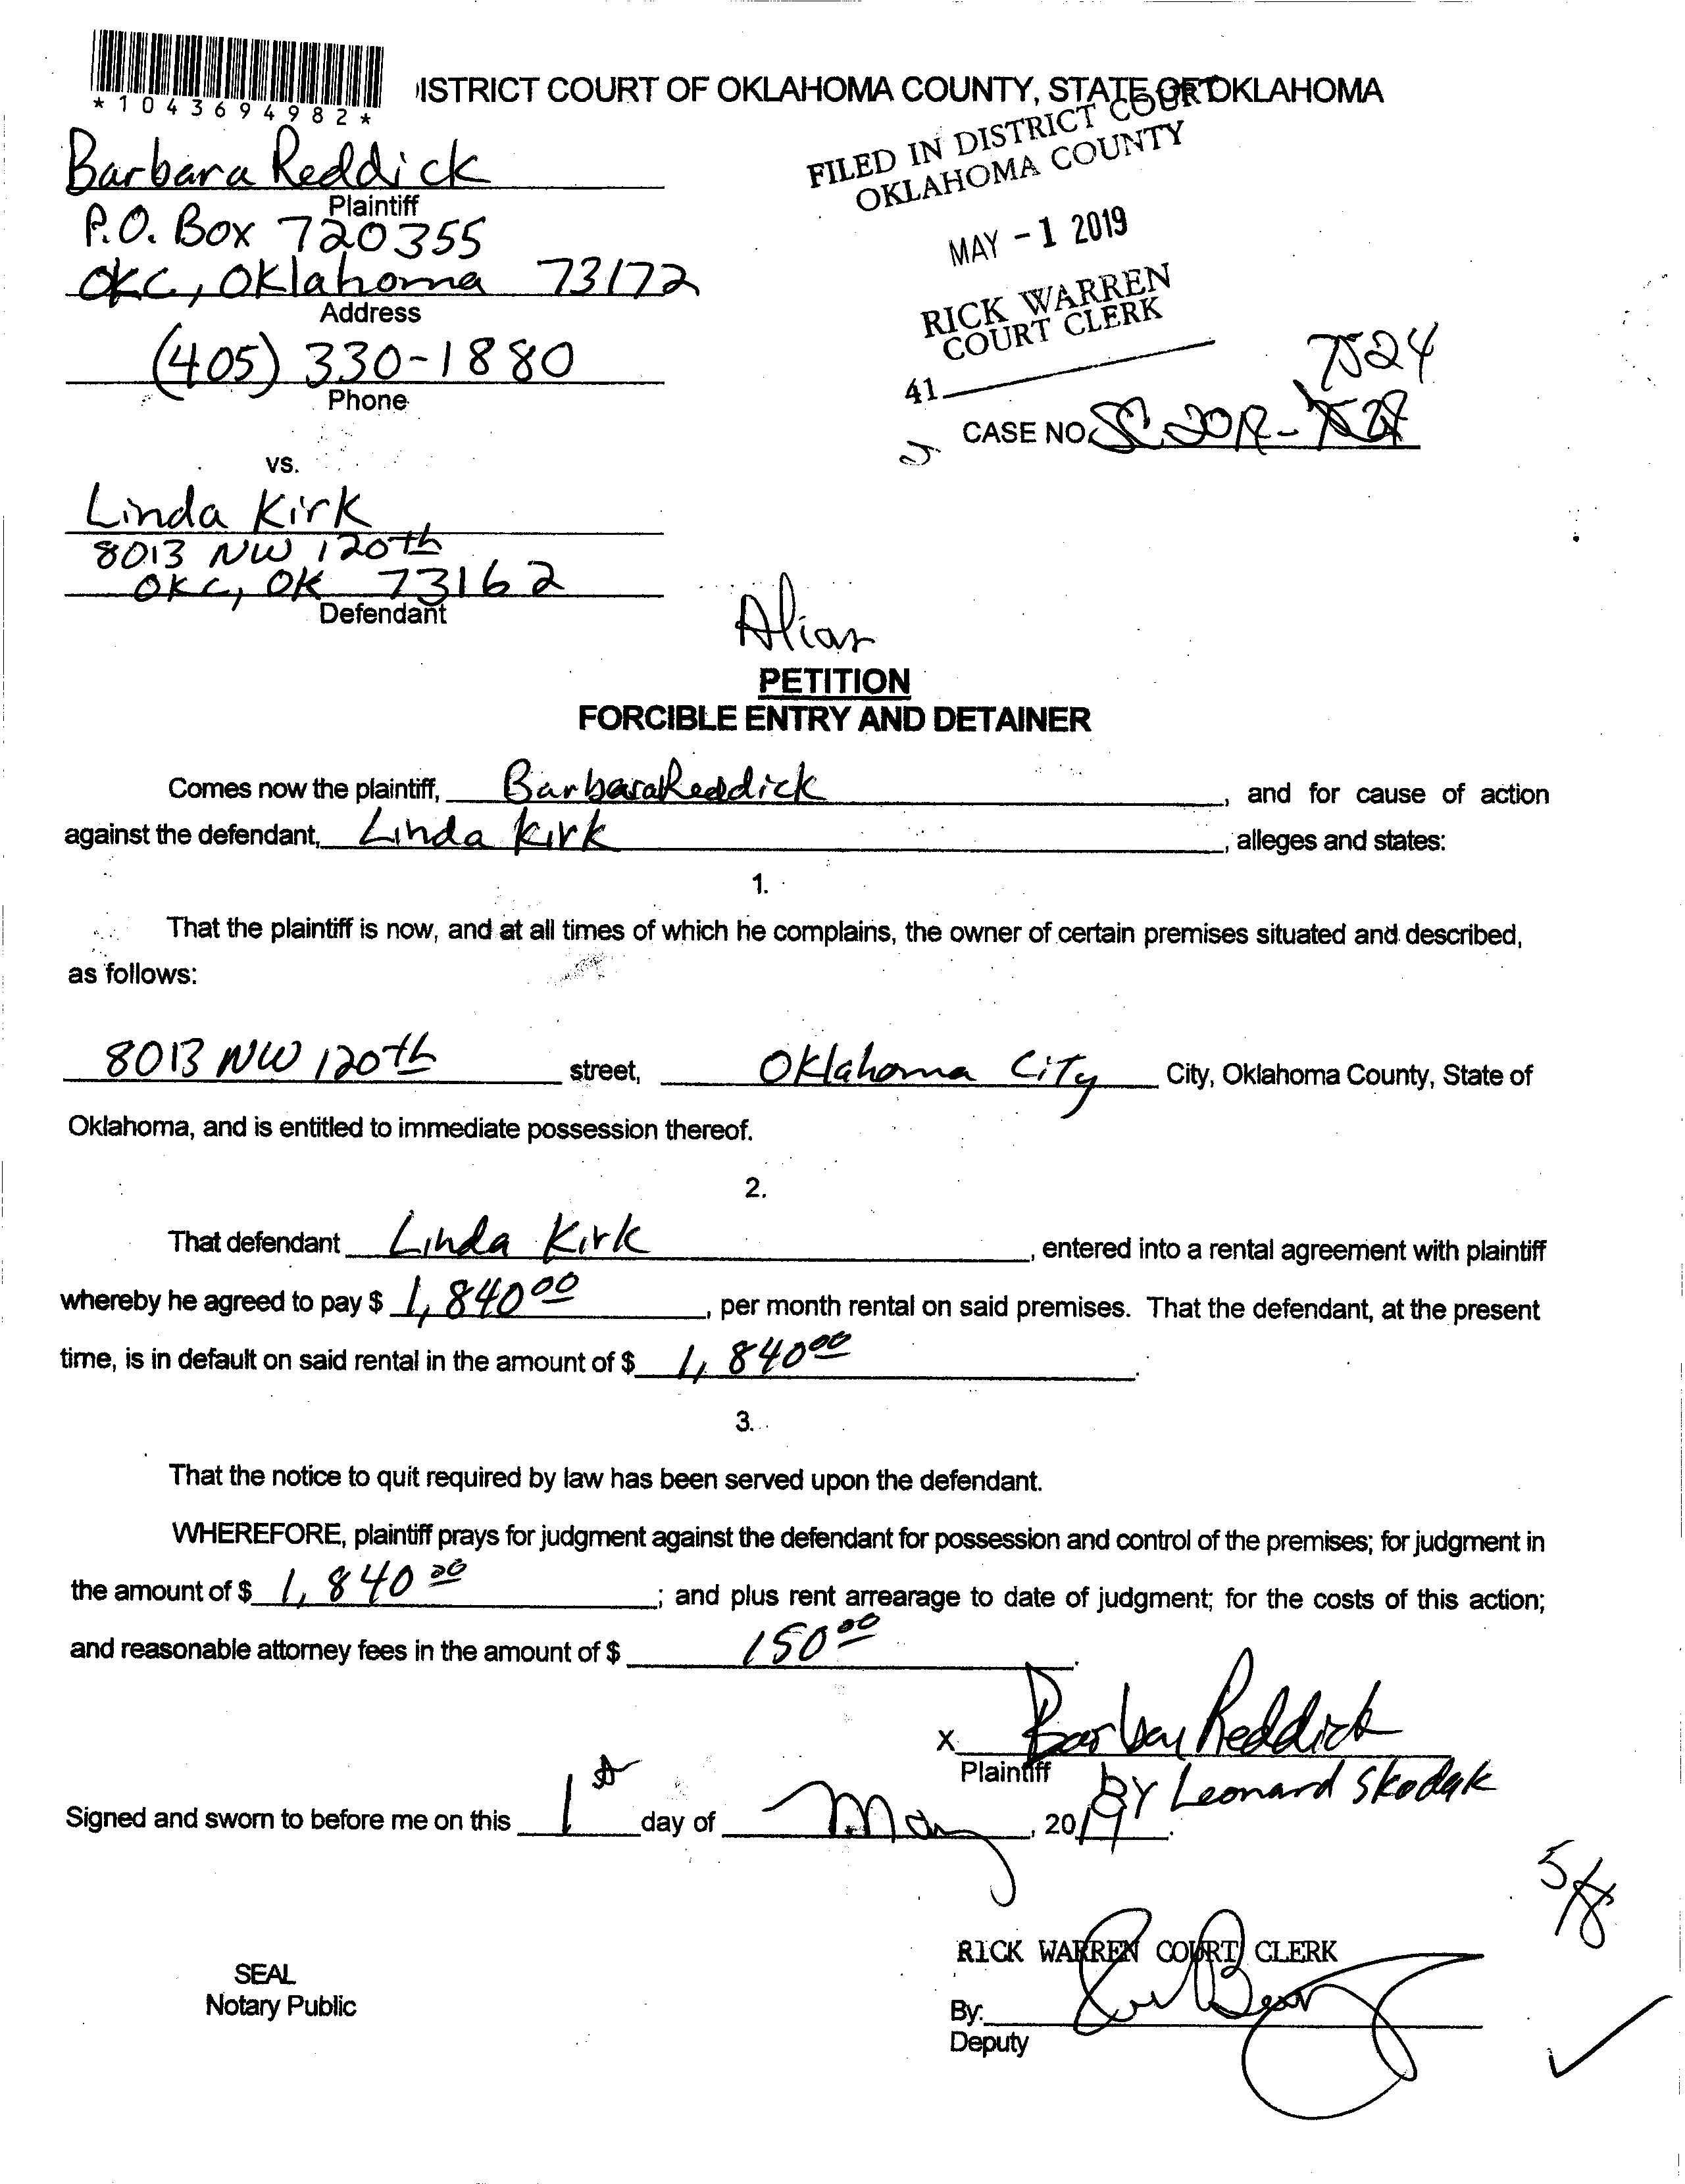 *1043694982*
ISTRICT COURT OF OKLAHOMA COUNTY, STATE OF OKLAHOMA
FILED IN DISTRICT COURT
OKLAHOMA COUNTY
Barbara Reddick
Plaintiff
P.O. Box 720355
OKC, Oklahoma 73172
Address
MAY - 1 2019
RICK WARREN
COURT CLERK
(405) 330-1880
Phone
41
7524
CASE NO. SC 2019-
vs.
Linda Kirk
8013 NW 120th
OKC, OK 73162
Defendant
Alias
PETITION
FORCIBLE ENTRY AND DETAINER
Comes now the plaintiff, Barbara Reddick, and for cause of action
against the defendant, Linda Kirk, alleges and states:
1.
That the plaintiff is now, and at all times of which he complains, the owner of certain premises situated and described,
as follows:
8013 NW 120th street, Oklahoma City City, Oklahoma County, State of
Oklahoma, and is entitled to immediate possession thereof.
2.
That defendant Linda Kirk, entered into a rental agreement with plaintiff
whereby he agreed to pay $ 1,840 00, per month rental on said premises. That the defendant, at the present
time, is in default on said rental in the amount of $ 1,840 00.
3.
That the notice to quit required by law has been served upon the defendant.
WHEREFORE, plaintiff prays for judgment against the defendant for possession and control of the premises; for judgment in
the amount of $ 1,840 00; and plus rent arrearage to date of judgment; for the costs of this action;
and reasonable attorney fees in the amount of $ 150 00.
X Barbara Reddick
Plaintiff BY Leonard Skodak
Signed and sworn to before me on this 1st day of May, 2019.
5/8
RICK WARREN COURT CLERK
SEAL
Notary Public
By:
Deputy